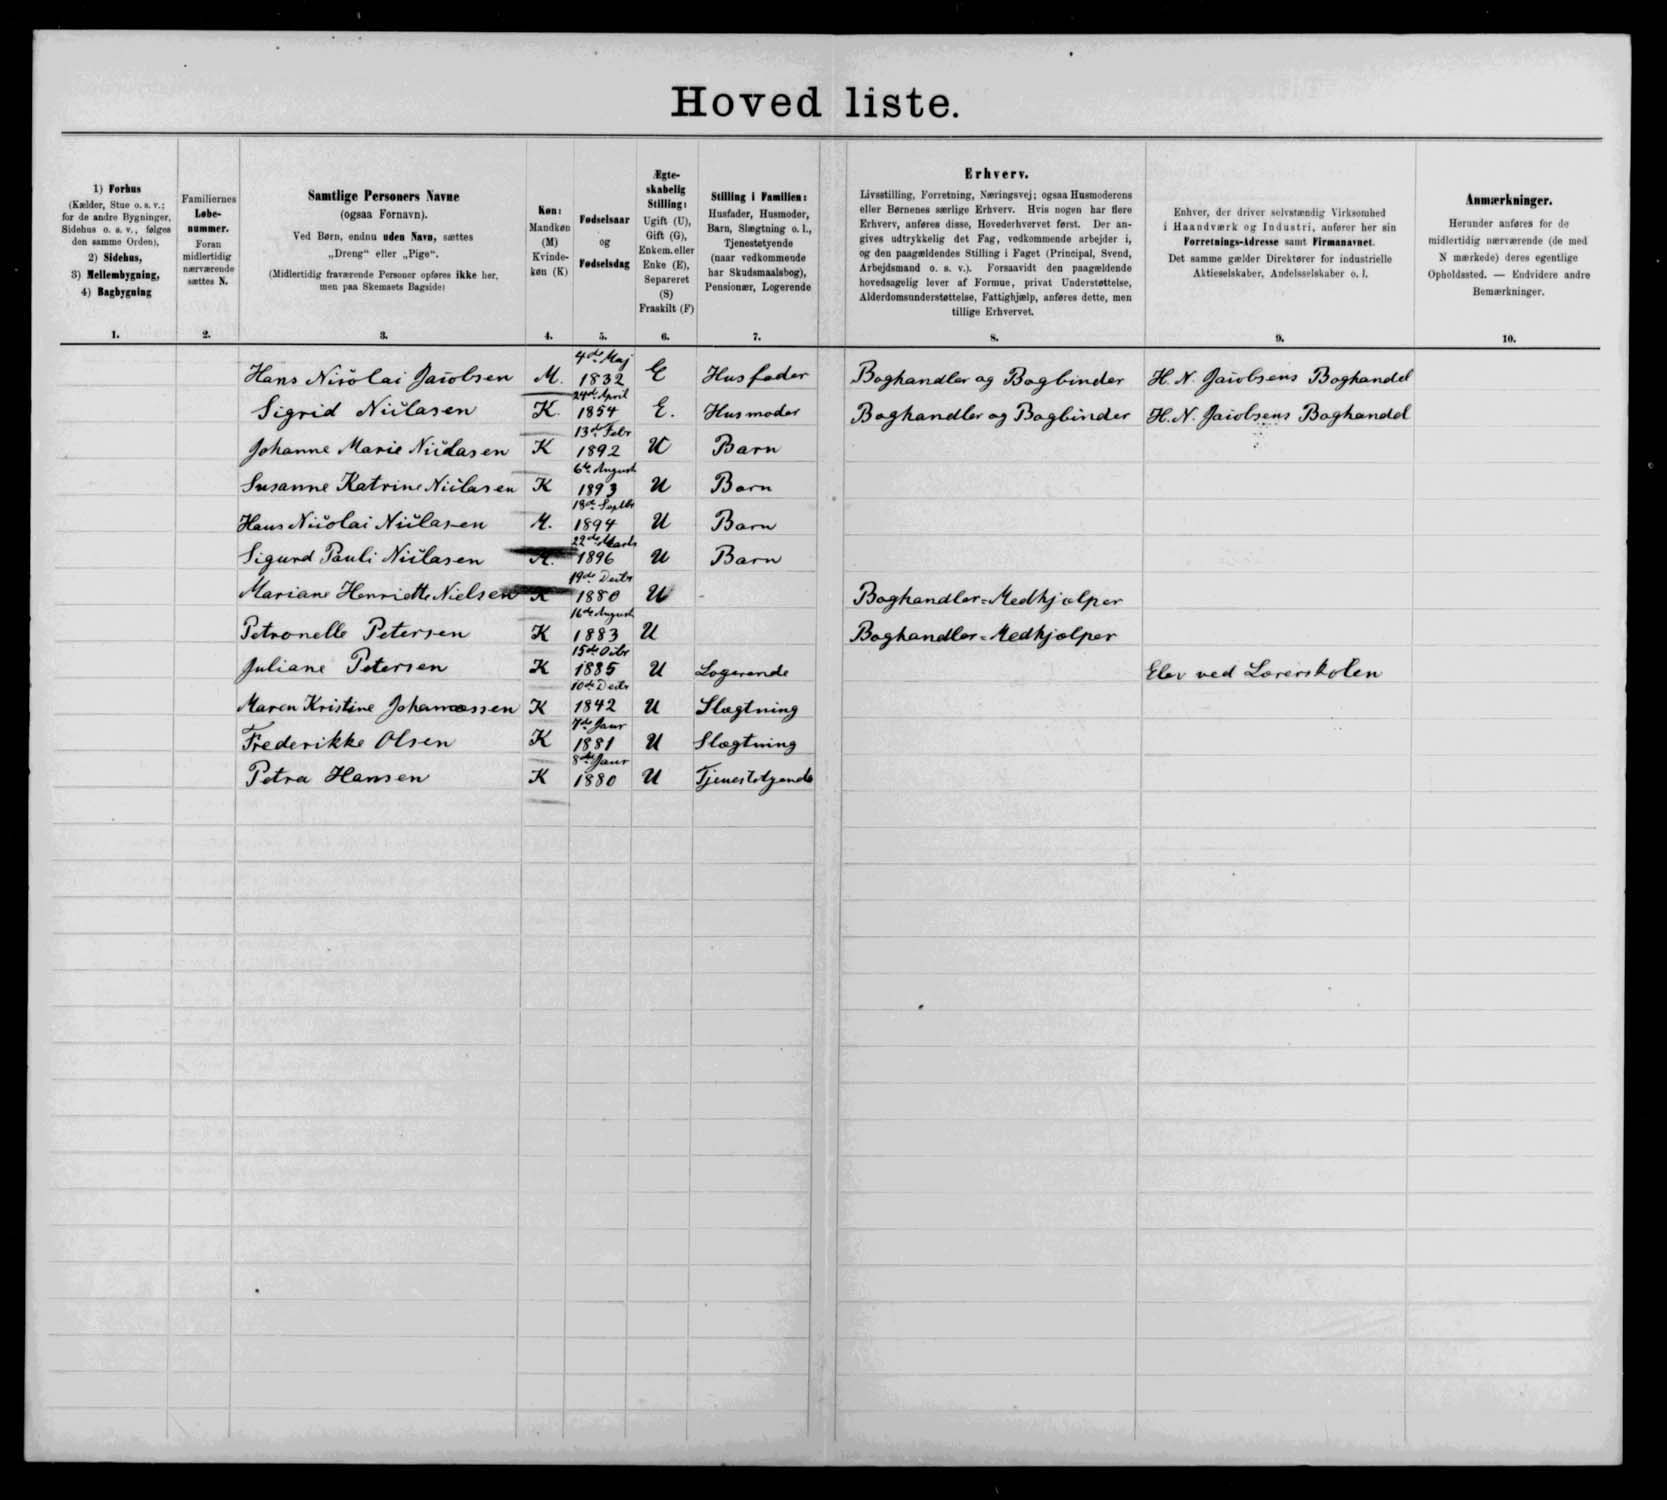 Hovedliste.
1) Forhus
(Kælder, Stue o. s. v.;
for de andre Bygninger,
Sidehus o. s. v., følges
den samme Orden),
2) Sidehus,
3) Mellembygning,
4) Bagbygning
1.
Familiernes
Løbe-
nummer.
Foran
midlertidig
nærværende
sættes N.
2.
Samtlige Personers Navne
(ogsaa Fornavn).
Ved Børn, endnu uden Navn, sættes
„Dreng“ eller „Pige“.
(Midlertidig fraværende Personer opføres ikke her,
men paa Skemaets Bagside)
3.
Køn:
Mandkøn
(M)
Kvinde-
køn (K)
4.
Fødselsaar
og
Fødselsdag
5.
Ægte-
skabelig
Stilling:
Ugift (U),
Gift (G),
Enkem. eller
Enke (E),
Separeret
(S)
Fraskilt (F)
6.
Stilling i Familien:
Husfader, Husmoder,
Barn, Slægtning o. l.,
Tjenestetyende
(naar vedkommende
har Skudsmaalsbog),
Pensionær, Logerende
7.
Erhverv.
Livsstilling, Forretning, Næringsvej; ogsaa Husmoderens
eller Børnenes særlige Erhverv. Hvis nogen har flere
Erhverv, anføres disse, Hovederhvervet først. Der an-
gives udtrykkelig det Fag, vedkommende arbejder i,
og den paagældendes Stilling i Faget (Principal, Svend,
Arbejdsmand o. s. v.). Forsaavidt den paagældende
hovedsagelig lever af Formue, privat Understøttelse,
Alderdomsunderstøttelse, Fattighjælp, anføres dette, men
tillige Erhvervet.
8.
Enhver, der driver selvstændig Virksomhed
i Haandværk og Industri, anfører her sin
Forretnings-Adresse samt Firmanavnet.
Det samme gælder Direktører for industrielle
Aktieselskaber, Andelsselskaber o. l.
9.
Anmærkninger.
Herunder anføres for de
midlertidig nærværende (de med
N mærkede) deres egentlige
Opholdssted. — Endvidere andre
Bemærkninger.
10.
4de Maj
Hans Nicolai Jacobsen M. 1832 E Husfader Boghandler og Bogbinder H. N. Jacobsens Boghandel
24de April
Sigrid Niclasen K. 1854 E. Husmoder Boghandler og Bogbinder H. N. Jacobsens Boghandel
13de Febr
Johanne Marie Niclasen K 1892 U Barn
6te August
Susanne Katrine Niclasen K 1893 U Barn
18de Septbr
Hans Nicolai Niclasen M. 1894 U Barn
22de Marts
Sigurd Pauli Niclasen M. 1896 U Barn
19de Decbr
Mariane Henriette Nielsen K 1880 U - Boghandler=Medhjælper
16de August
Petronelle Petersen K 1883 U Boghandler=Medhjælper
15de Octbr
Juliane Petersen K 1885 U Logerende Elev ved Lærerskolen
10de Decbr
Maren Kristine Johannessen K 1842 U Slægtning
7de Janr
Frederikke Olsen K 1881 U Slægtning
8de Janr
Petra Hansen K 1880 U Tjenestetyende